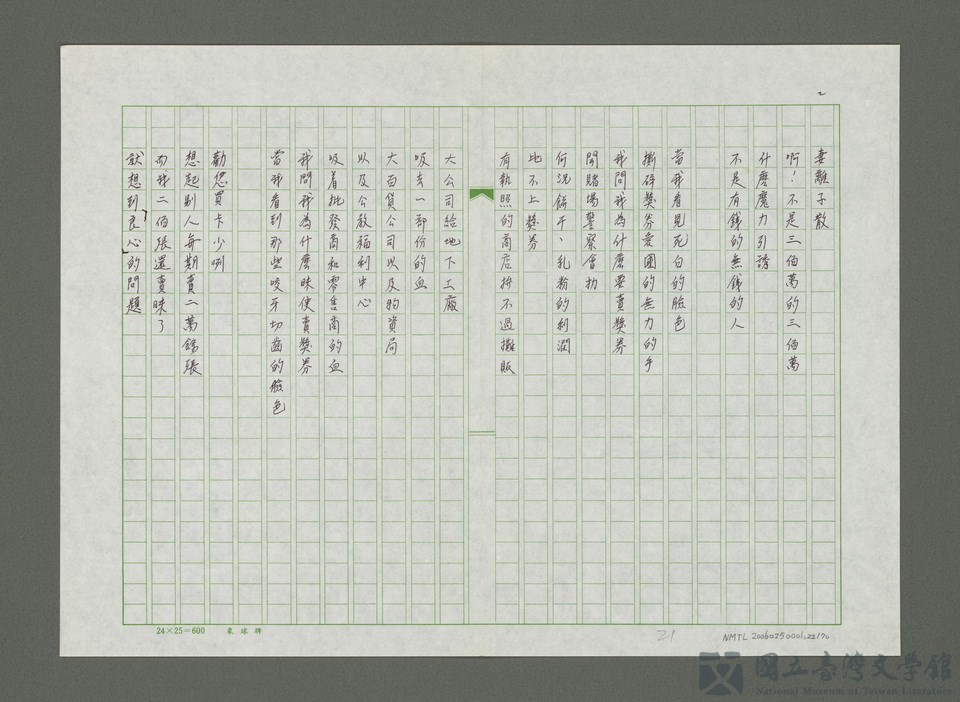 2
妻離子散
啊!不是三佰萬的三佰萬
什麼魔力引誘
不是有錢的無錢的人
當我看見死白的臉色
撕碎獎券愛國的無力的手
我問我為什麼要賣獎券
開賭場警察會抓
何況餅干、乳粉的利潤
比不上獎券
有執照的商店拚不過攤販
大公司給地下工廠
吸去一部份的血
大百貨公司以及物資局
以及公教福利中心
吸着批發商和零售商的血
我問我為什麼昧使賣獎券
當我看到那些咬牙切齒的臉色
勸您買卡少咧
想起別人每期賣二萬餘張
而我二佰張還賣昧了
就想到良心的問題
24×25=600
21
NMTL 20060250001.22/70
國立臺灣文學館
National Museum of Taiwan Literature